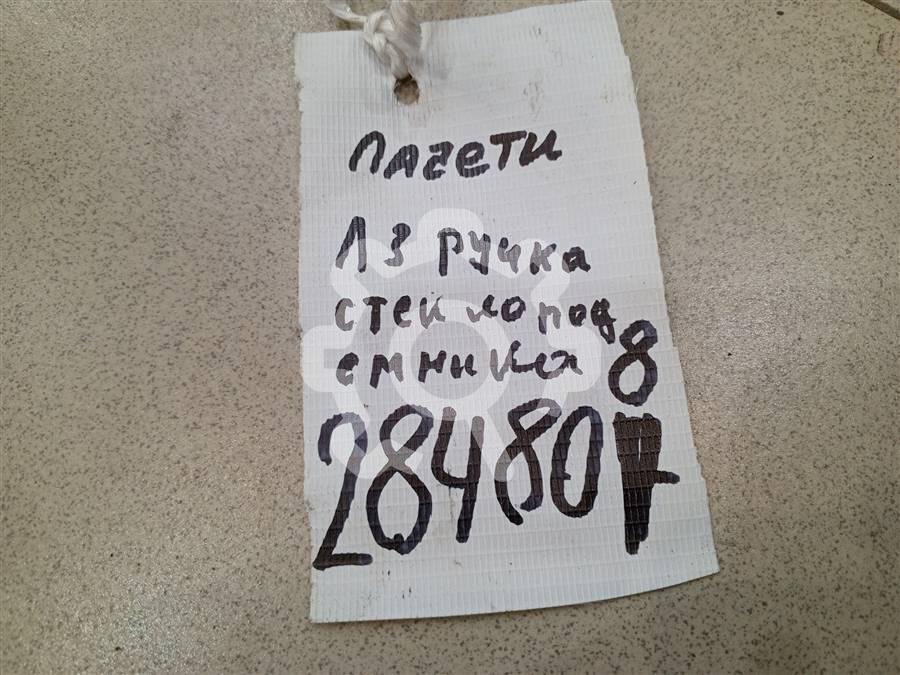 Лачети
ЛЗ ручка
стеклопод
емника 8
284807